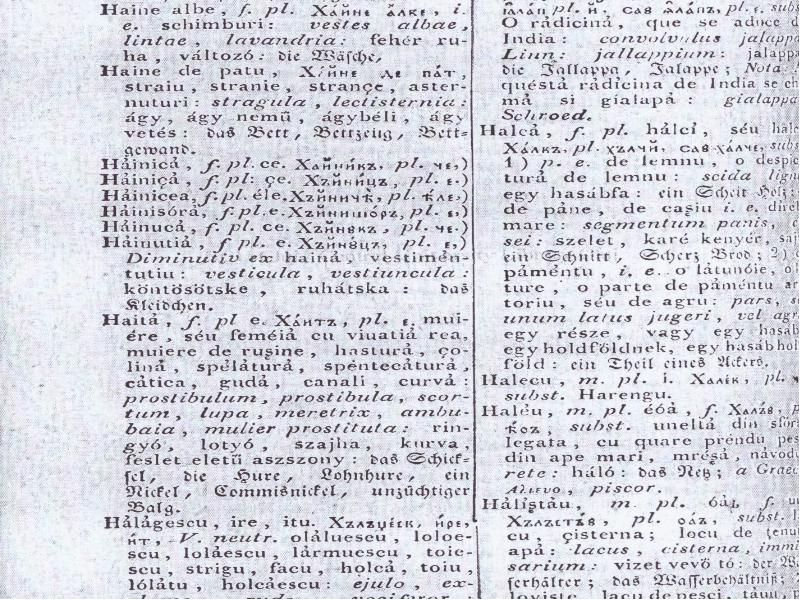 Haine albe, f. pl. Ха́йне а́лбе, i.
e. schimburi: vestes albae,
lintae, lavandria: fehér ru-
ha, változó: die Wäsche,
Haine de patu, Ха́йне де па́т,
straiu, stranie, strançe, aster-
nuturi: stragula, lectisternia:
ágy, ágy nemü, ágybéli, ágy
vetés: das Bett, Bettzeug, Bett-
gewand.
Hàinicà, f. pl. ce. pl. че,)
Hàiniçà, f. pl: çe. pl. е.)
Hàinicea, f. pl. éle. pl.
Hàinisórà, f. pl. e. pl. е,)
Hàinucà, f. pl. ce. pl. че.)
Hàinutià, f pl. e. pl. е,)
Diminutiv ex hainà, vestimén-
tutiu: vesticula, vestiuncula:
köntösötske, ruhátska: das
Kleidchen.
Haità, f. pl e. Ха́итъ, pl. е, mui-
ére, séu feméià cu viuatià rea,
muiere de rușine, hasturà, ço-
linà, spélàturà, spéntecàturà,
càtica, gudà, canali, curvà:
prostibulum, prostibula, scor-
tum, lupa, meretrix, ambu-
baia, mulier prostituta: rin-
gyó, lotyó, szajha, kurva,
feslet eletü aszszony: das Schick-
sel, die Hure, Lohnhure, ein
Nickel, Commisnickel, unzüchtiger
Balg.
Hàlàgescu, ire, itu.
V. neutr. olàluescu, loloe-
scu, lolàescu, làrmuescu, toie-
scu, strigu, facu, holcà, toiu,
lólàtu, holcàescu: ejulo, ex-
pl. й, сав pl. е. subst.
O ràdicinà, que se aduce d
India: convolvulus jalappa
Linn: jallappium: jalapp
die Jallappa, Jalappe; Nota!
quéstà ràdicina de India se ch
mà si gialapà: gialappa
Schroed.
Halcà, f. pl. hàlci, séu hàlc
Ха́лкъ, pl. хълчй, сав ха́лче, subs
1) p. e. de lemnu, o despic
turà de lemnu: scida lign
egy hasábfa: ein Scheit Holz:
de pàne, de cașiu i. e. diret
mare: segmentum panis, c
sei: szelet, karé kenyér, saj
ein Schnitt, Scherz Brod; 2) o
pàméntu, i. e. o làtunóie, o l
ture, o parte de pàméntu ar
toriu, séu de agru: pars, s
unum latus jugeri, vel agr
egy része, vagy egy hasáb
egy holdföldnek, egy hasáb hol
föld: ein Theil eines Ackers.
Halecu, m. pl. i. Хале́к, pl.
subst. Harengu.
Haléu, m. pl. éóà, f.
subst. uneltà din sfóra
legata, cu quare préndu pes
din ape mari, mréșà, nàvodu
rete: háló: das Netz; a Graec
piscor.
Hàlịștàu, m. pl. óà, f. u
pl. оа́ъ, subst. l
cu, çisterna; locu de tenu
apà: lacus, cisterna, immi
sarium: vizet vevö tó: der W
serhälter; das Wasserbehältniß;
loviște, lacu de pesci, tàuu, p